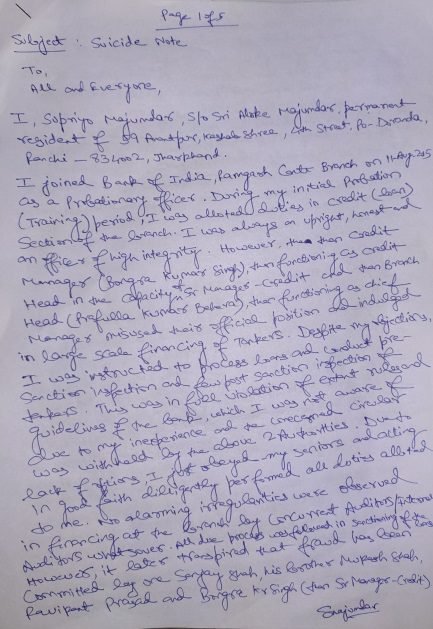 Page 1 of 5
Subject : Suicide Note
To,
All and Everyone,
I, Supriyo Majumdar, S/o Sri Aloke Majumdar, permanent
resident of 59 Anantpur, Kashab Shree, 4th Street, Po- Doranda,
Ranchi - 834002, Jharkhand.
I joined Bank of India, Ramgarh Cantt Branch on 11-Aug-2015
as a Probationary officer. During my initial Probation
(Training) period, I was alloted duties in credit (loan)
Section of the branch. I was always an upright, honest and
an officer of high integrity. However, the then Credit
Manager (Bongra Kumar Singh), then functioning as credit
Head in the capacity of Sr Manager-Credit and then Branch
Head (Prafulla Kumar Behera), then functioning as chief
Manager misused their official position and indulged
in large scale financing of Tankers. Despite my objections,
I was instructed to process loans and conduct pre-
Sanction inspection and few post sanction inspection of
tankers. This was in full violation of extant rules and
guidelines of the bank which I was not aware of
due to my inexperience and the concerned circular
was withheld by the above 2 Authorities. Due to
lack of options, I just obeyed my seniors and acting
in good faith diligently performed all duties alloted
to me. No alarming irregularities were observed
in financing at the branch by Concurrent Auditors/Internal
Auditors whatsoever. All due process was followed in sanctioning of the loans
However, it later transpired that fraud has been
Committed by one Sanjay Shah, his brother Mukesh Shah,
Ravikant Prasad and Bongra Kr Singh (then Sr Manager-Credit)
Smajumdar